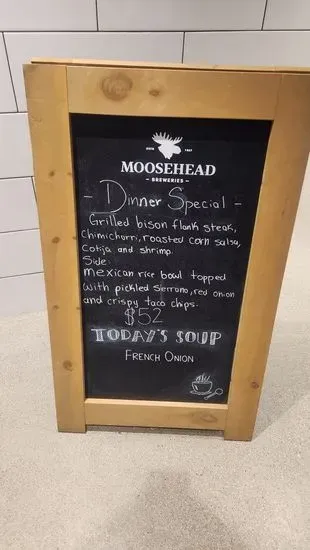 ESTD 1867
MOOSEHEAD
- BREWERIES -
- Dinner Special -
Grilled bison flank steak,
Chimichurri, roasted corn salsa,
Cotija and shrimp.
Side:
mexican rice bowl topped
with pickled Serrano, red onion
and crispy taco chips.
$52
TODAY'S SOUP
FRENCH ONION